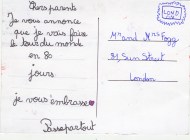 Chers parents
Je vous annonce
que je vais faire
le tour du monde
en 80
jours
je vous embrasse
Passepartout
LOND
Mr and Mrs Fogg
Sun Street
London